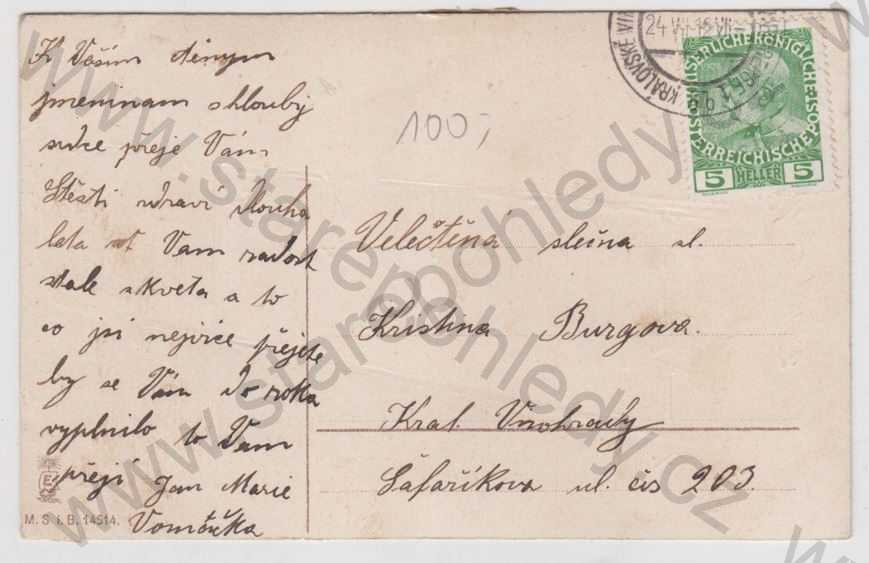 K Vaším ctěnym
jmeninam z hlouby
srdce přeje Vám
Štěsti zdraví dlouha
leta ať Vam radost
stale zkveta a to
co jsi nejvice přejete
by se Vám do roka
vyplnilo to Vam
přejí Jan Marie
Vomčuka
M. S. i. B. 14514.
100,-
24 VII
KRÁLOVSKÉ
KAISERLICHE KÖNIGLICHE
ÖSTERREICHISCHE POST
5 HELLER 5
Velectěná slečna sl.
Kristina Burgova.
Kral. Vinohrady
Šafaříkova ul. čis 203.
www.starepohledy.cz
www.starepohledy.cz